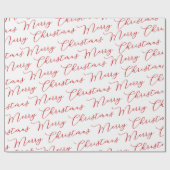 Merry Christmas Merry
Christmas Merry Christmas
Merry Christmas Merry
Christmas Merry Christmas
Merry Christmas Merry
Christmas Merry Christmas
Merry Christmas Merry
Christmas Merry Christmas